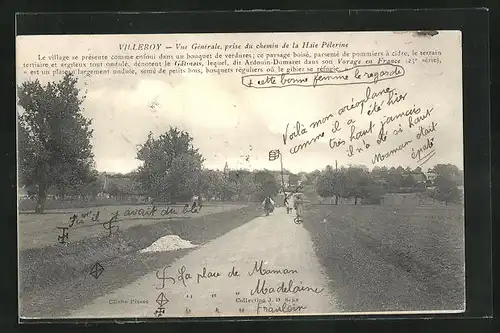 VILLEROY – Vue Générale, prise du chemin de la Haie Pèlerine
Le village se présente comme enfoui dans un bouquet de verdures; ce paysage boisé, parsemé de pommiers à cidre, le terrain
tertiaire et argileux tout ondulé, dénotent le Gâtinais, lequel, dit Ardouin-Dumazet dans son Voyage en France (
« est un plateau largement ondulé, semé de petits bois, bosquets réguliers où le gibier se réfugie
cette bonne femme le regarde
Voilà mon aréoplane
comme il a été hier
très haut jamais
il n'a été si haut
Maman était
épaté
il y avait du blé
La place de Maman
Madelaine
Cliché Pinson
Collection J. D. Sens